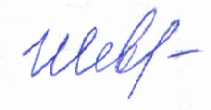 Шевр-